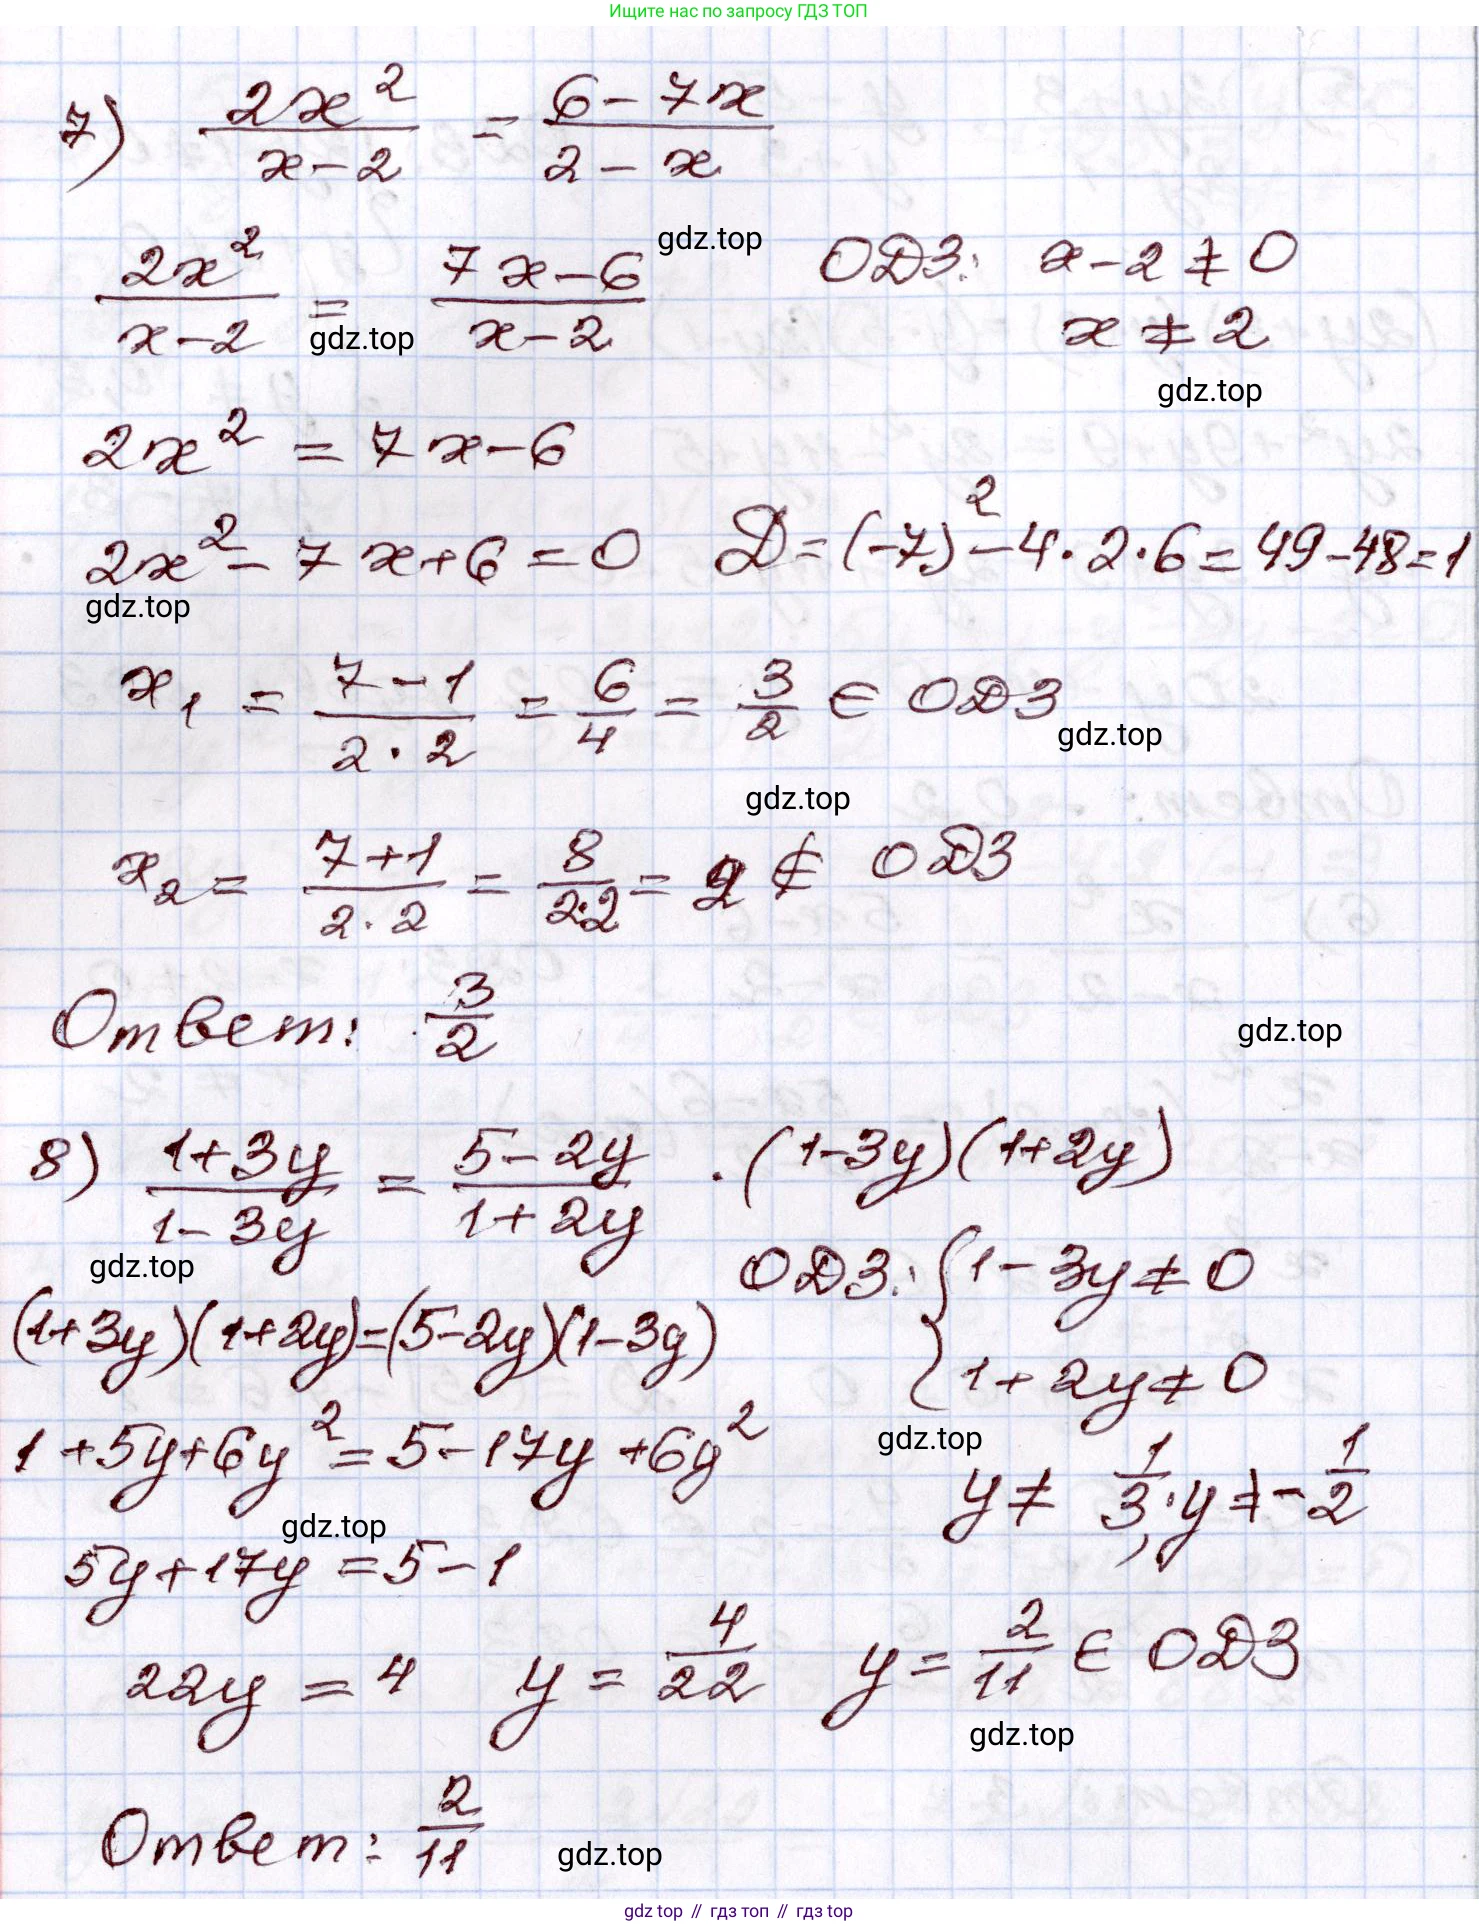 Ищите нас по запросу ГДЗ ТОП
7) 2x²/(x-2) = (6-7x)/(2-x)
gdz.top
2x²/(x-2) = (7x-6)/(x-2) ОДЗ: x-2≠0
x≠2
gdz.top
gdz.top
2x² = 7x-6
2x²-7x+6=0 D=(-7)²-4·2·6=49-48=1
gdz.top
x₁ = (7-1)/(2·2) = 6/4 = 3/2 ∈ ОДЗ
gdz.top
gdz.top
x₂ = (7+1)/(2·2) = 8/(2·2) = 2 ∉ ОДЗ
Ответ: 3/2
gdz.top
8) (1+3y)/(1-3y) = (5-2y)/(1+2y) ·(1-3y)(1+2y)
gdz.top
ОДЗ: { 1-3y≠0
(1+3y)(1+2y)=(5-2y)(1-3y)
1+2y≠0
gdz.top
1+5y+6y²=5-17y+6y²
y≠ 1/3, y≠-1/2
gdz.top
5y+17y=5-1
22y=4 y=4/22 y=2/11 ∈ ОДЗ
gdz.top
Ответ: 2/11
gdz.top
gdz top // гдз топ // гдз top